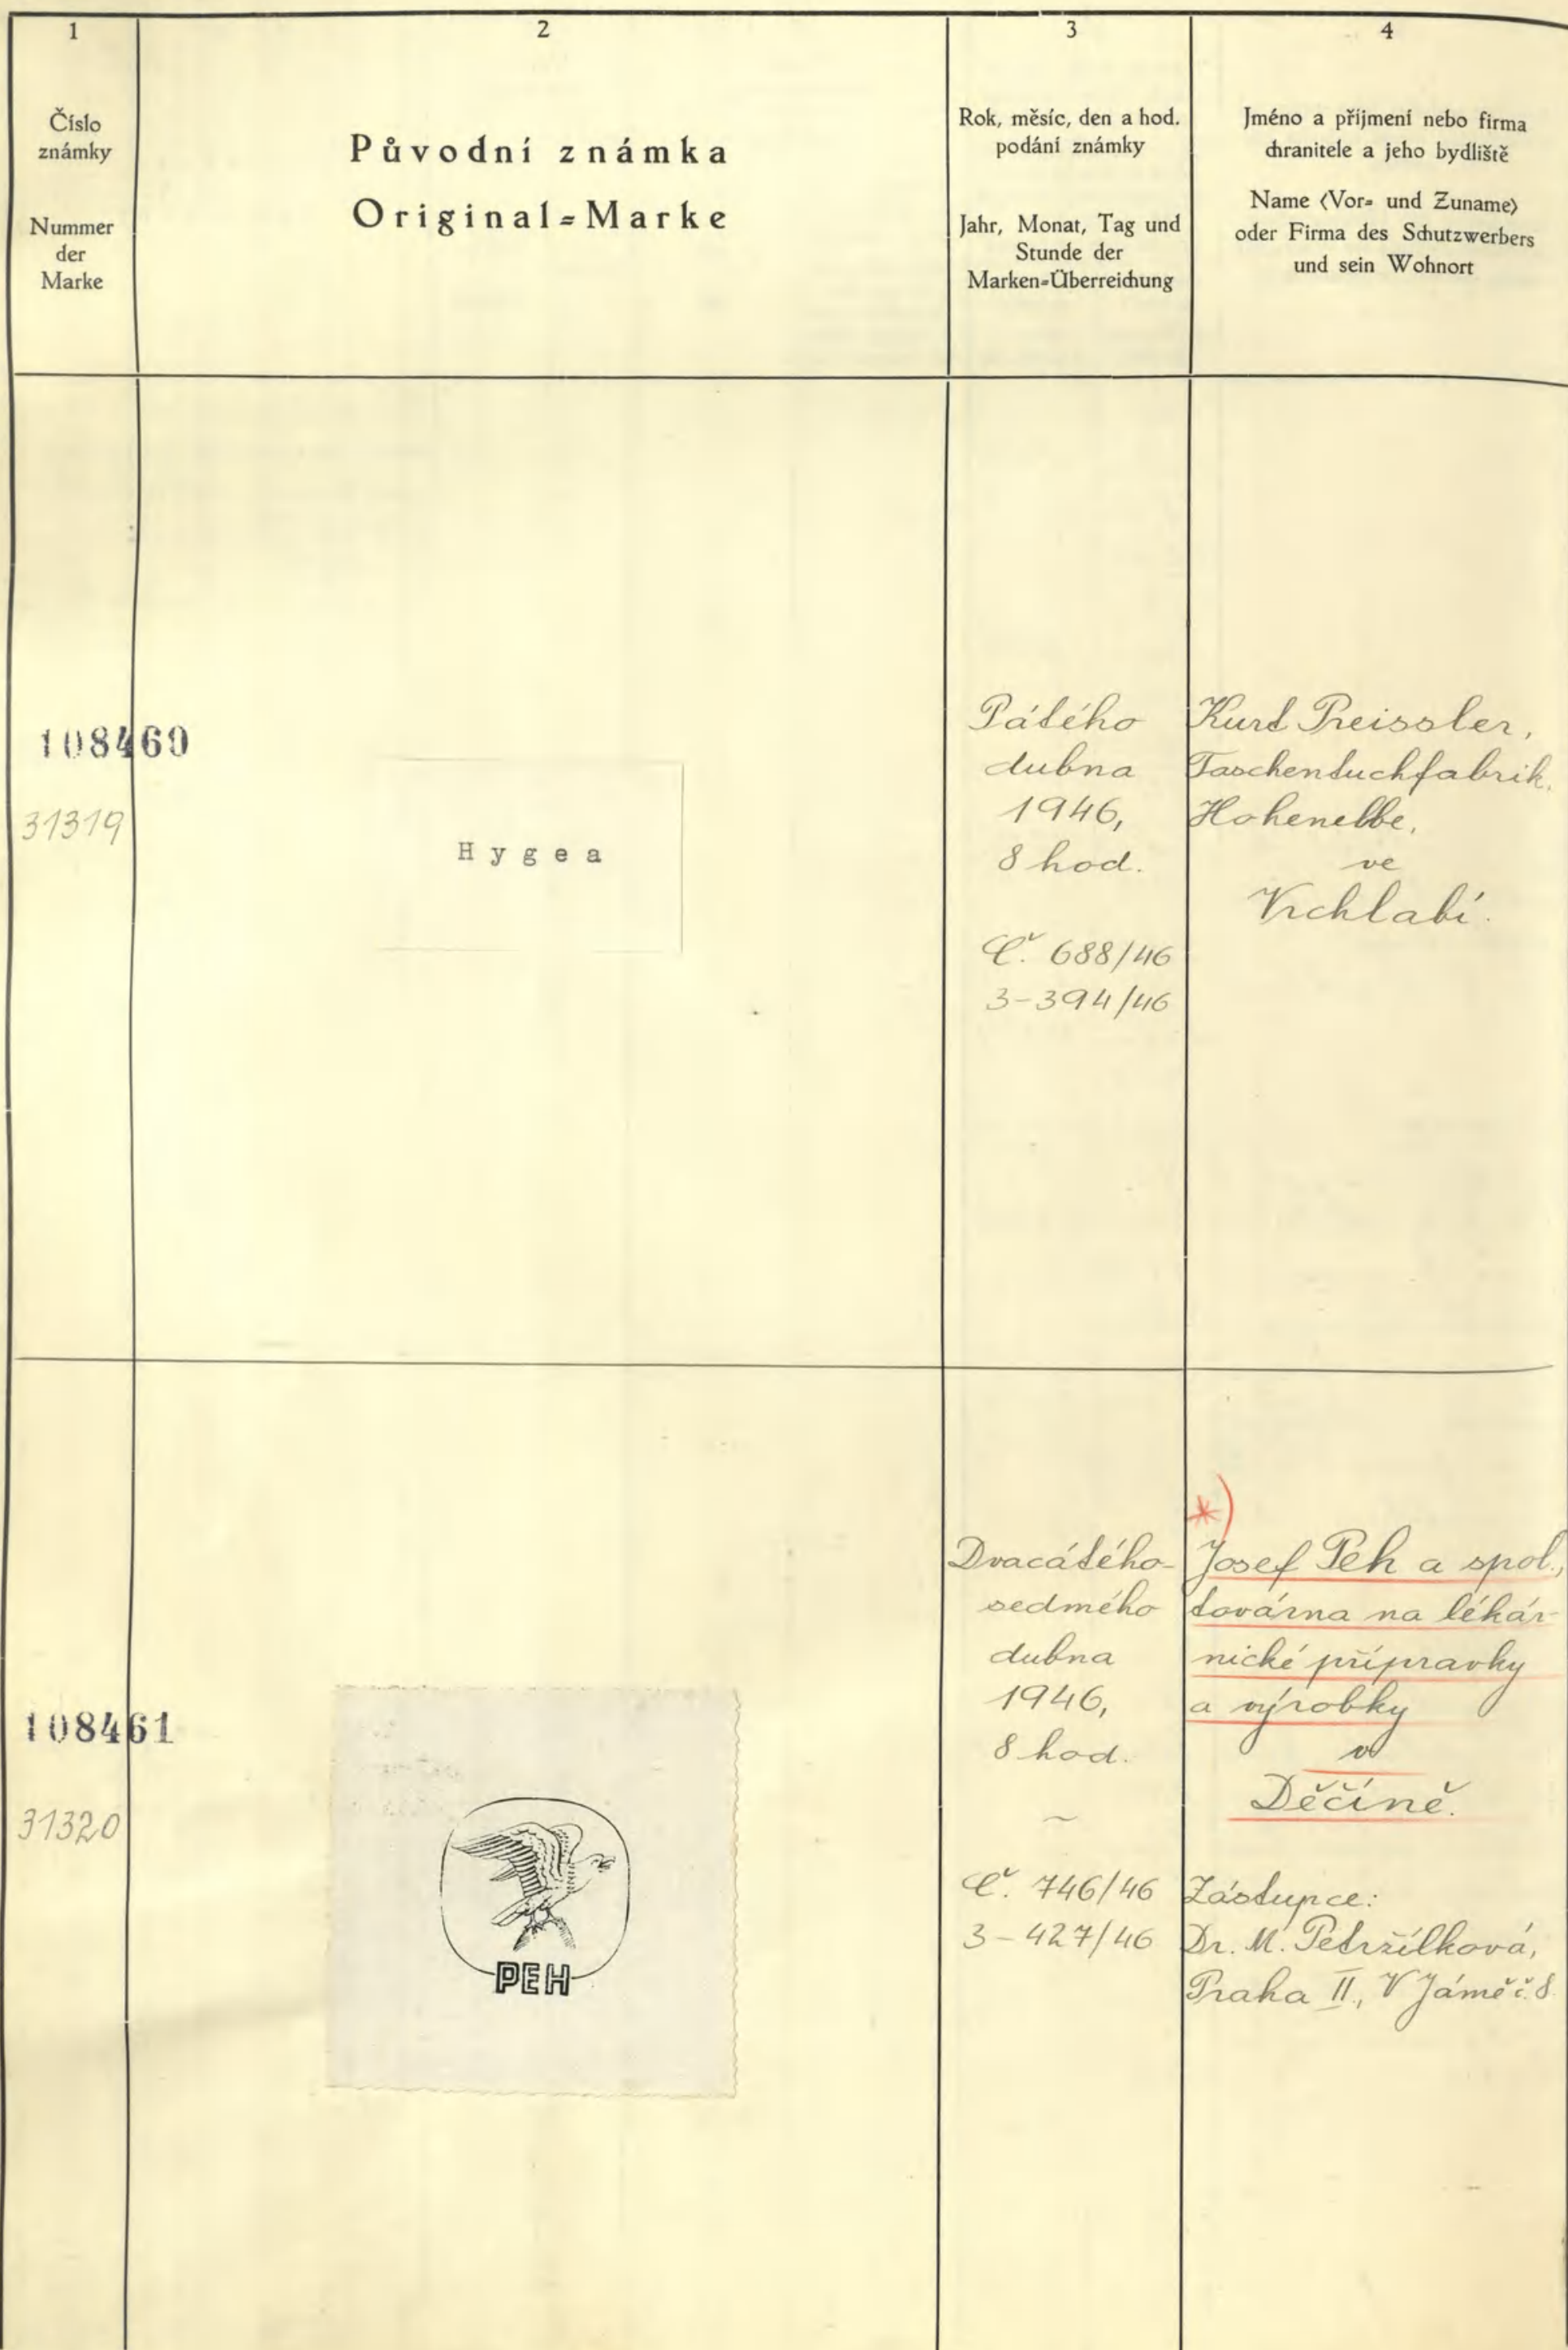 1
2
3
4
Číslo
známky
Nummer
der
Marke
Původní známka
Original=Marke
Rok, měsíc, den a hod.
podání známky
Jahr, Monat, Tag und
Stunde der
Marken=Überreichung
Jméno a příjmení nebo firma
chranitele a jeho bydliště
Name (Vor= und Zuname)
oder Firma des Schutzwerbers
und sein Wohnort
108460
31319
Hygea
Pátého
dubna
1946,
8 hod.
Č. 688/46
3-394/46
Kurt Preissler,
Taschentuchfabrik,
Hohenelbe,
ve
Vrchlabí.
108461
31320
PEH
Dvacátého-
sedmého
dubna
1946,
8 hod.
~
Č. 746/46
3-427/46
*)
Josef Peh a spol.,
továrna na lékár-
nické přípravky
a výrobky
v
Děčíně.
Zástupce:
Dr. M. Petržílková,
Praha II., V Jámě č. 8.